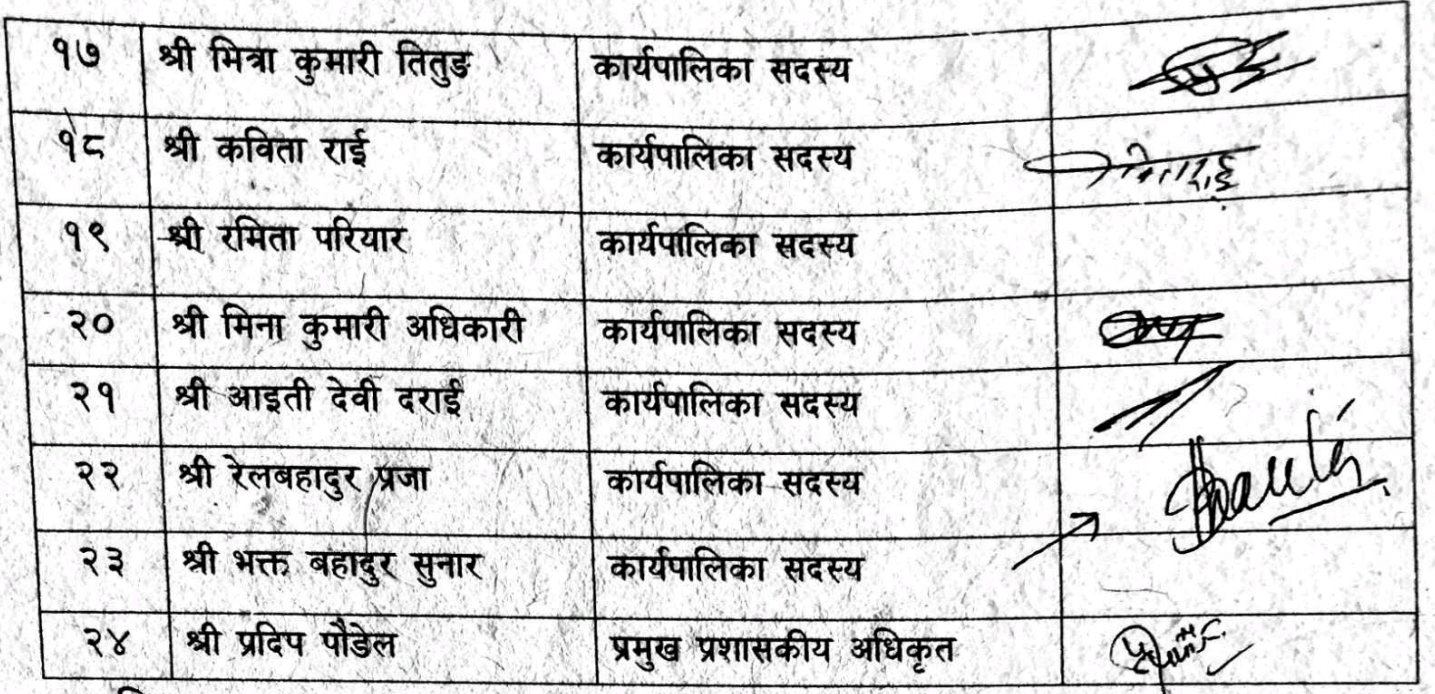 १७ श्री मित्रा कुमारी तितुङ कार्यपालिका सदस्य
१८ श्री कविता राई कार्यपालिका सदस्य
१९ श्री रमिता परियार कार्यपालिका सदस्य
२० श्री मिना कुमारी अधिकारी कार्यपालिका सदस्य
२१ श्री आइती देवी दराई कार्यपालिका सदस्य
२२ श्री रेलबहादुर प्रजा कार्यपालिका सदस्य
२३ श्री भक्त बहादुर सुनार कार्यपालिका सदस्य
२४ श्री प्रदिप पौडेल प्रमुख प्रशासकीय अधिकृत